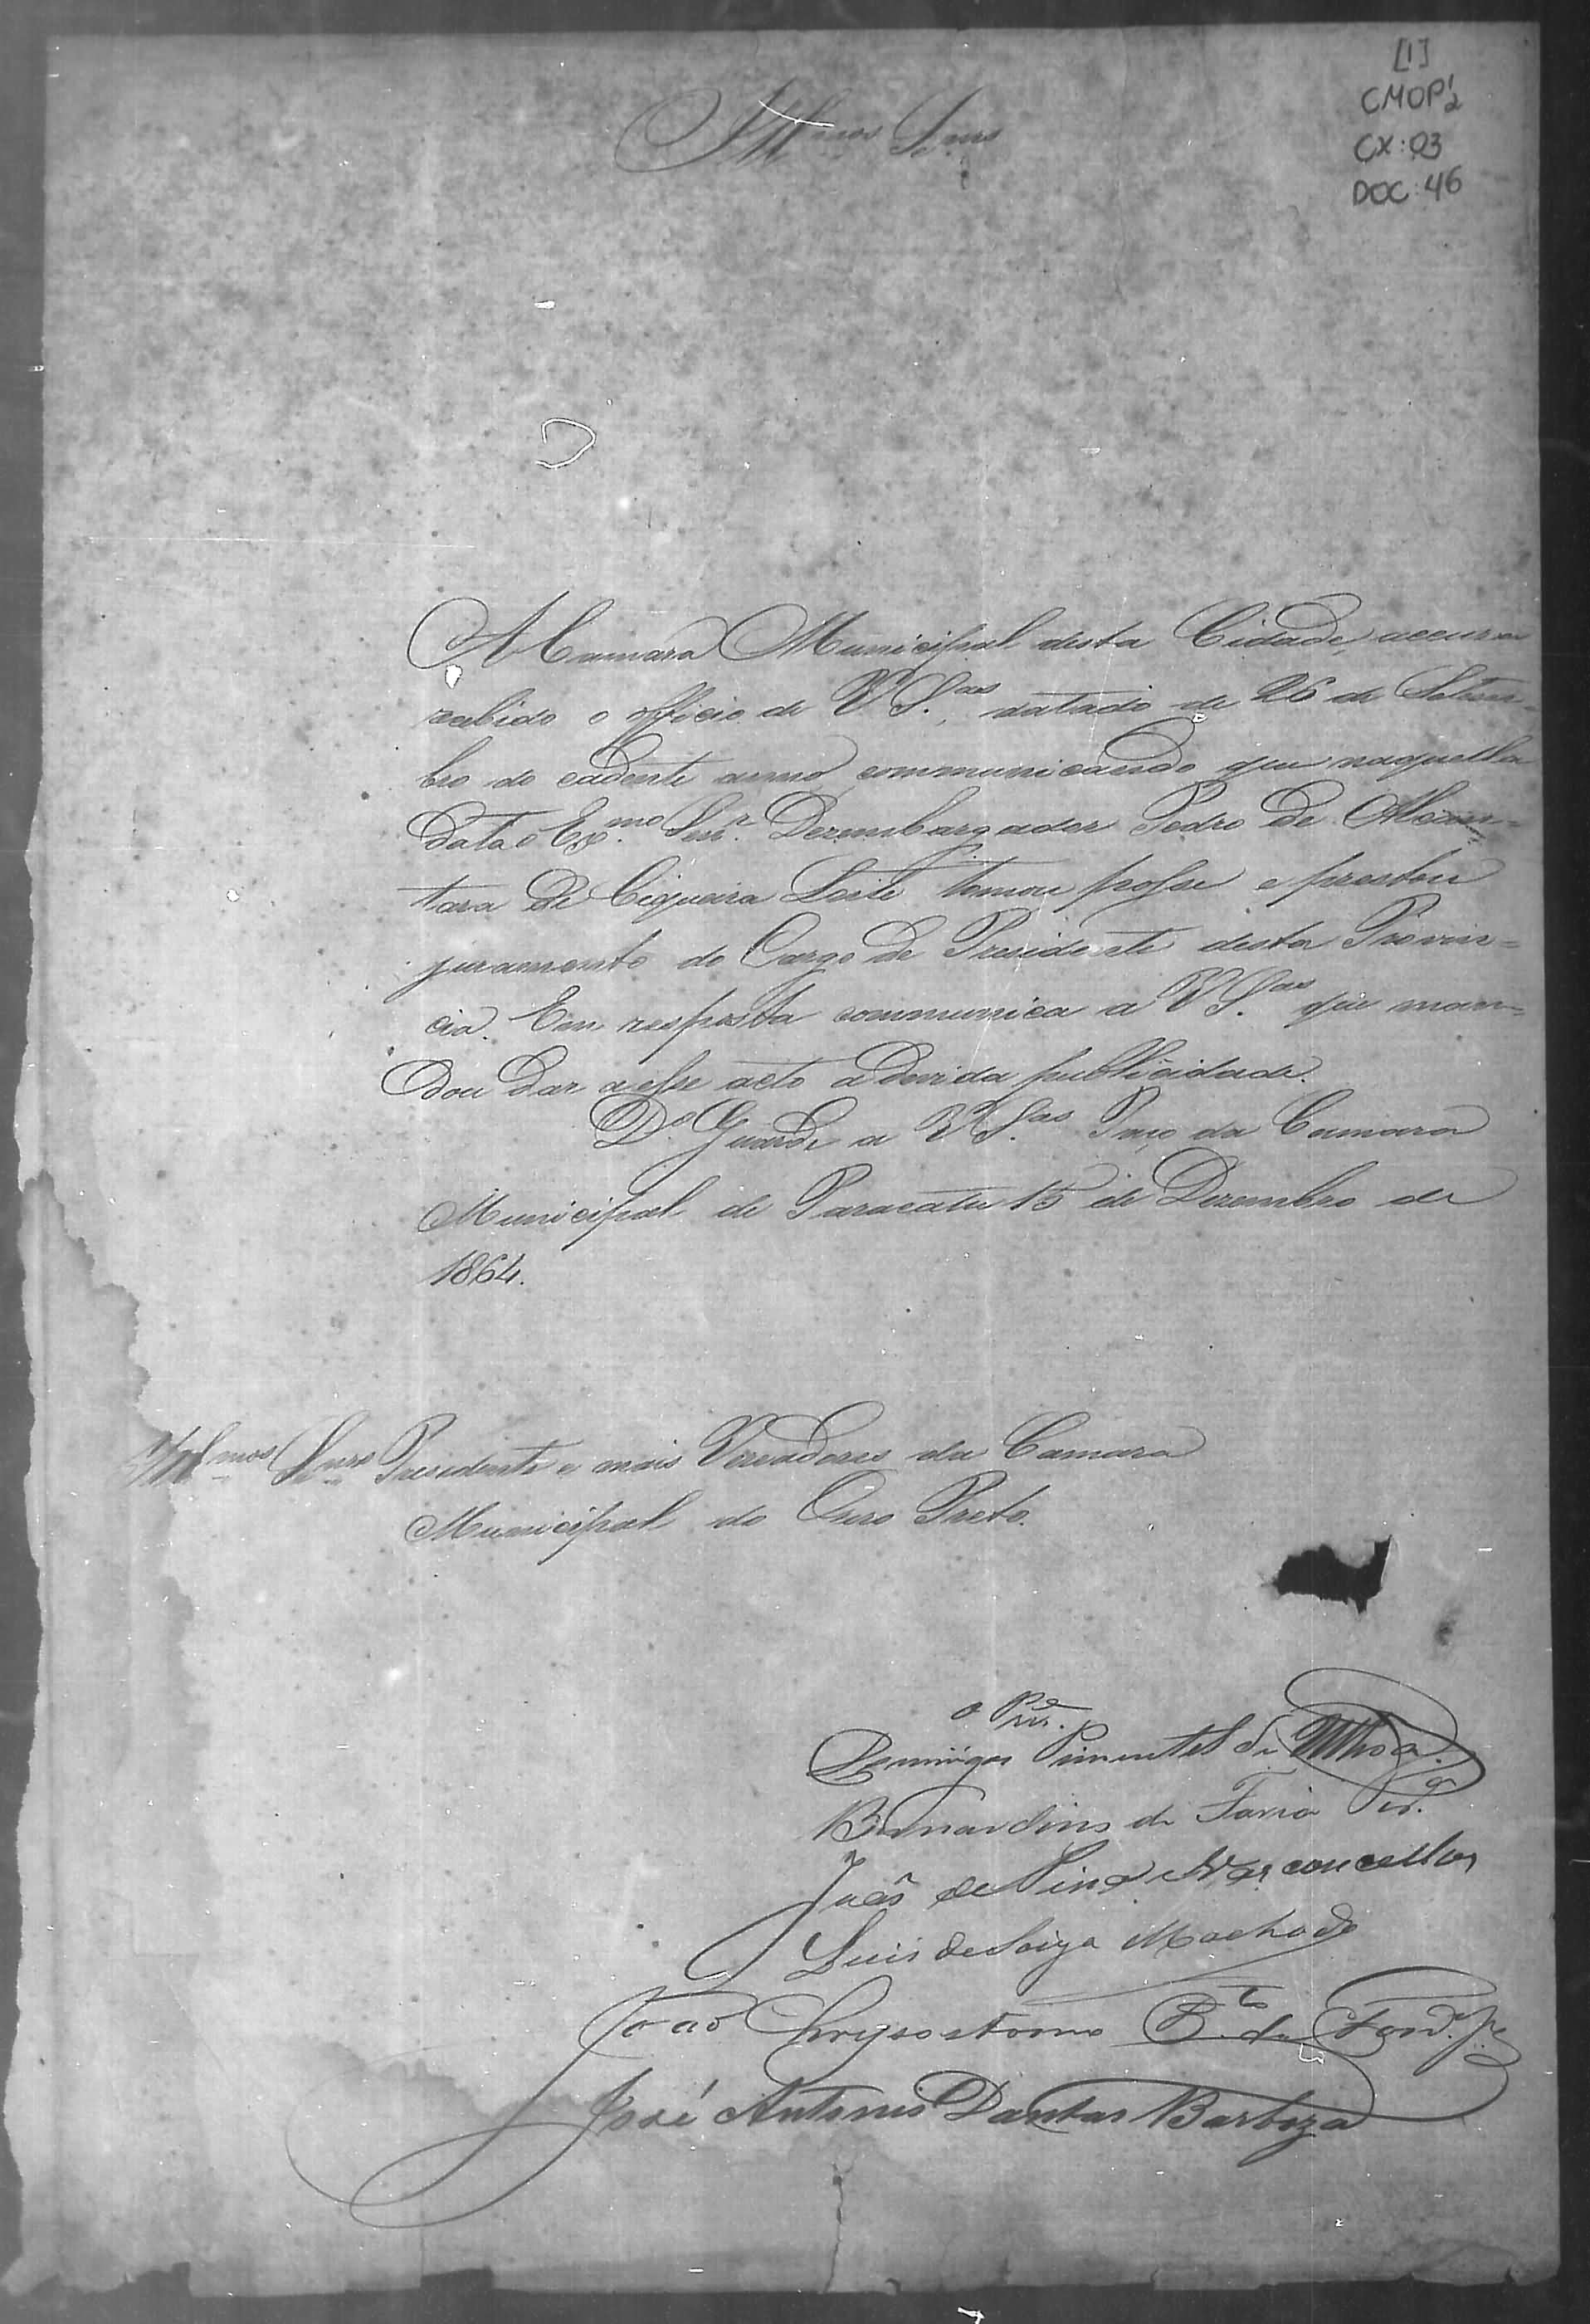 [1]
CMOP 1/2
CX: 03
DOC: 46
Illmos Snres
A Camara Municipal desta Cidade, accusa
recebido o officio de V. S.as, datado de 26 de Setem-
bro do cadente anno, communicando que naquella
data o Ex.mo Senr. Dezembargador Pedro de Alcan=
tara de Cirqueira Leite tomou posse e prestou
juramento do Cargo de Presidente desta Provin=
cia. Em resposta communica a V S.as que man=
dou dar a esse acto a devida publicidade.
D.s Guarde a V S.as Paço da Camara
Municipal de Paracatu 15 de Dezembro de
1864.
Illmos Snres Presidente e mais Vereadores da Camara
Municipal do Ouro Preto.
O Pres.e
Domingos Pimentel de Ulhoa
Bernardino de Faria Per.a
João de Pina e Vasconcellos
Luis de Soiza Machado
João Chrysostomo P.to da Fon.ca
José Antonio Dantas Barboza